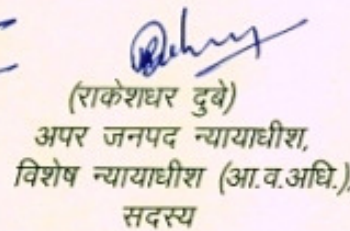 (राकेशधर दुबे)
अपर जनपद न्यायाधीश,
विशेष न्यायाधीश (आ.व.अधि.)
सदस्य